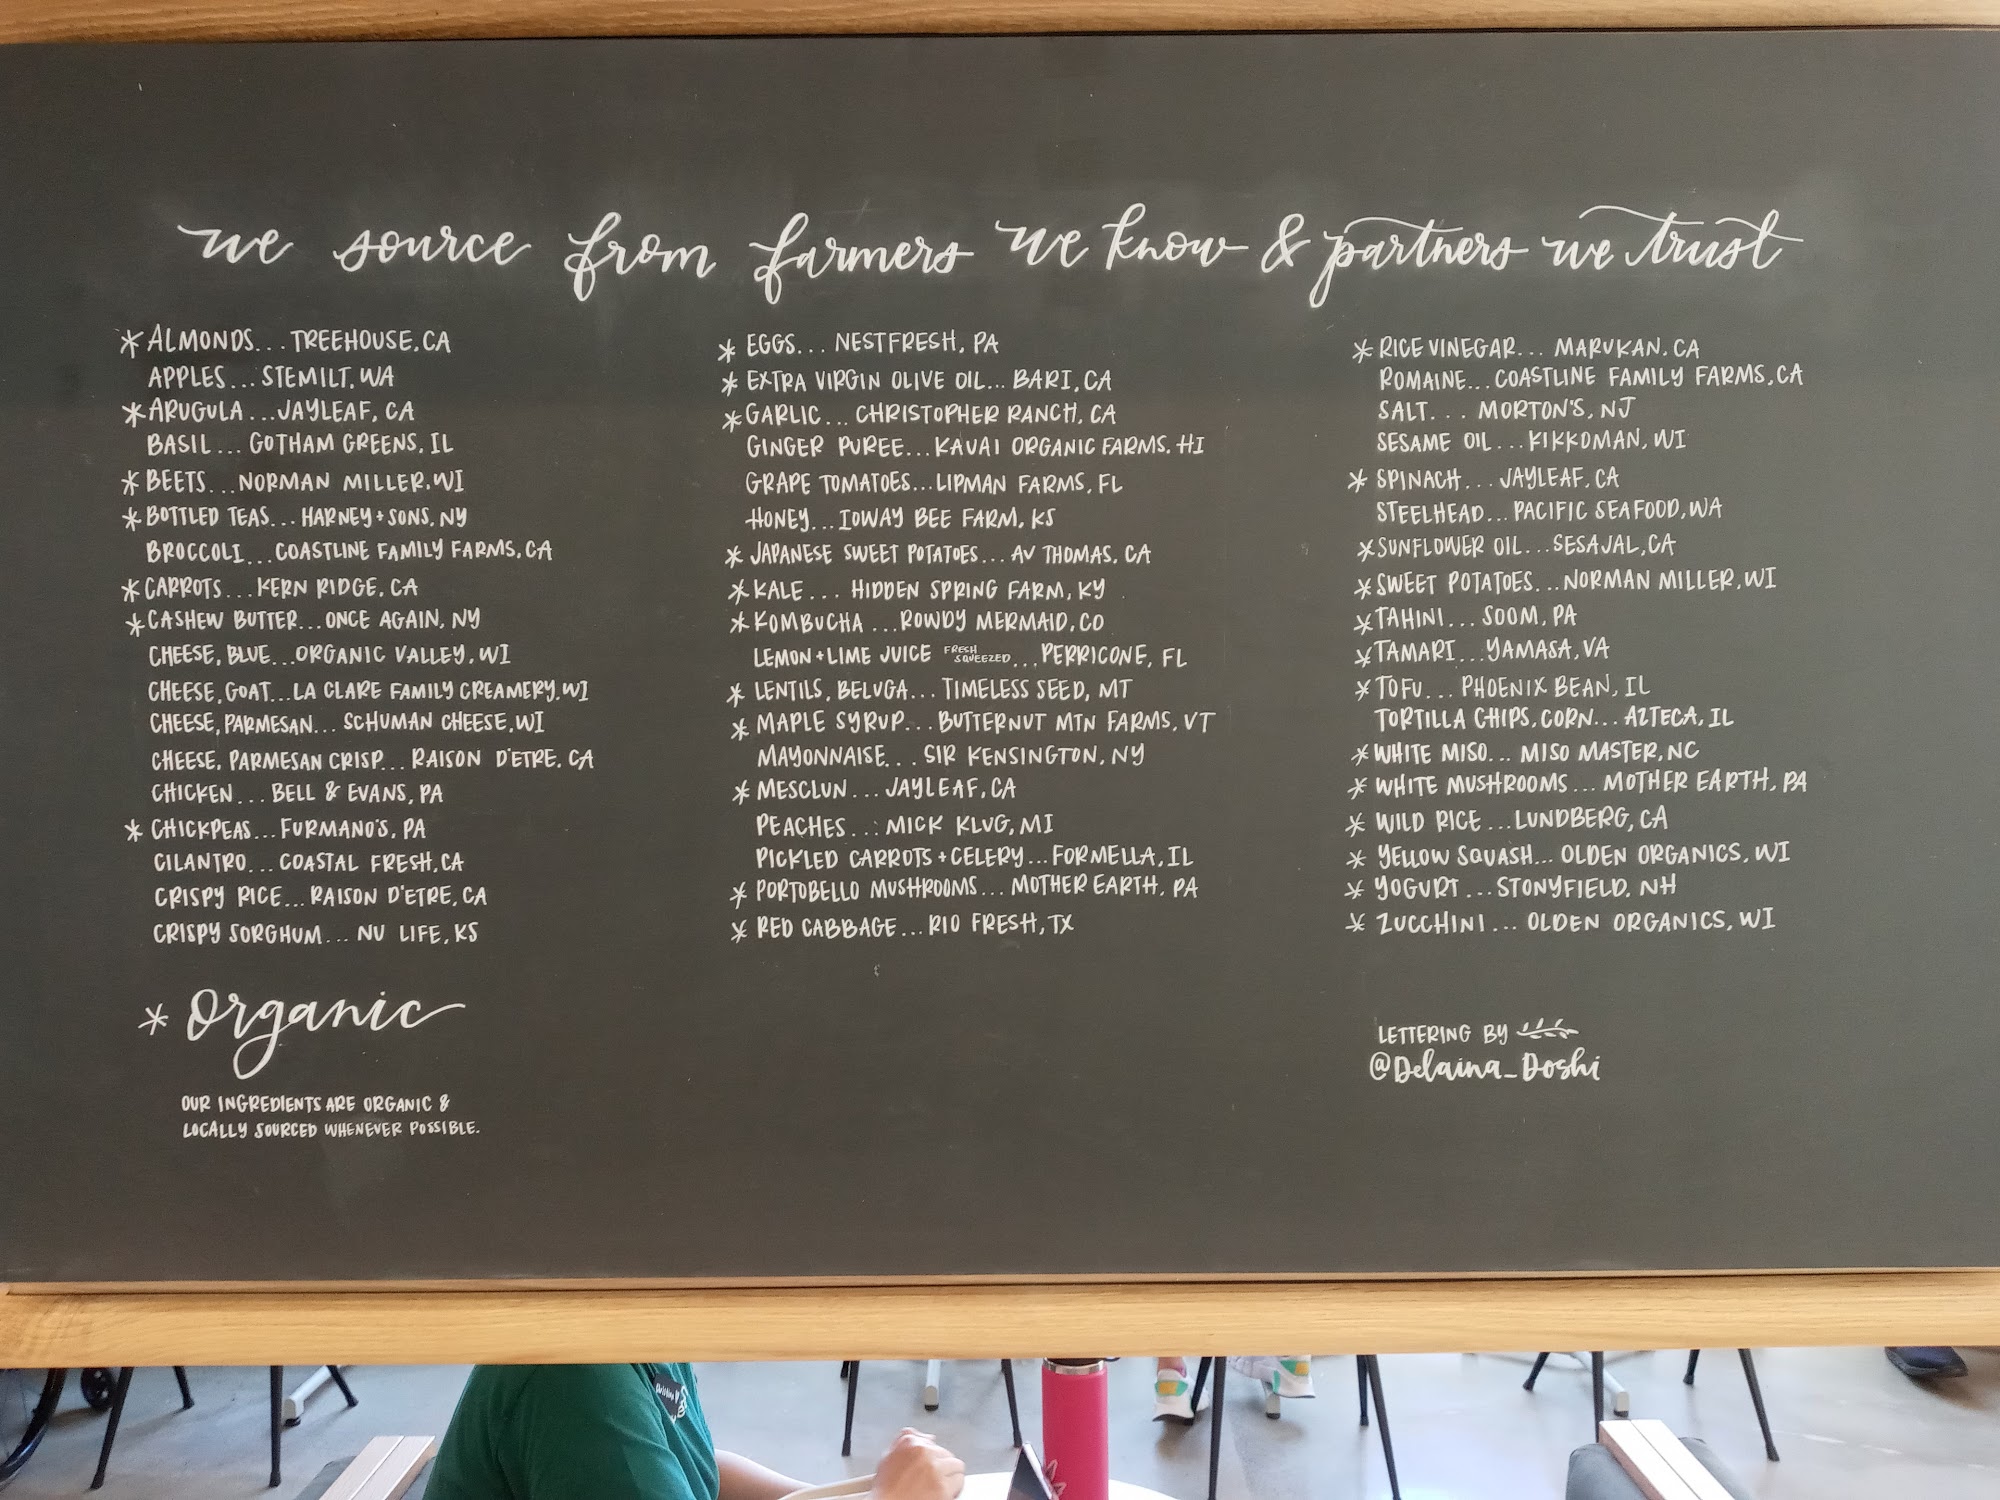 we source from farmers we know & partners we trust
* ALMONDS... TREEHOUSE, CA
APPLES... STEMILT, WA
* ARUGULA... JAYLEAF, CA
BASIL... GOTHAM GREENS, IL
* BEETS... NORMAN MILLER, WI
* BOTTLED TEAS... HARNEY + SONS, NY
BROCCOLI... COASTLINE FAMILY FARMS, CA
* CARROTS... KERN RIDGE, CA
* CASHEW BUTTER... ONCE AGAIN, NY
CHEESE, BLUE... ORGANIC VALLEY, WI
CHEESE, GOAT... LA CLARE FAMILY CREAMERY, WI
CHEESE, PARMESAN... SCHUMAN CHEESE, WI
CHEESE, PARMESAN CRISP... RAISON D'ETRE, CA
CHICKEN... BELL & EVANS, PA
* CHICKPEAS... FURMANO'S, PA
CILANTRO... COASTAL FRESH, CA
CRISPY RICE... RAISON D'ETRE, CA
CRISPY SORGHUM... NU LIFE, KS
* EGGS... NESTFRESH, PA
* EXTRA VIRGIN OLIVE OIL... BARI, CA
* GARLIC... CHRISTOPHER RANCH, CA
GINGER PUREE... KAUAI ORGANIC FARMS, HI
GRAPE TOMATOES... LIPMAN FARMS, FL
HONEY... IOWAY BEE FARM, KS
* JAPANESE SWEET POTATOES... AV THOMAS, CA
* KALE... HIDDEN SPRING FARM, KY
* KOMBUCHA... ROWDY MERMAID, CO
LEMON + LIME JUICE FRESH SQUEEZED... PERRICONE, FL
* LENTILS, BELUGA... TIMELESS SEED, MT
* MAPLE SYRUP... BUTTERNUT MTN FARMS, VT
MAYONNAISE... SIR KENSINGTON, NY
* MESCLUN... JAYLEAF, CA
PEACHES... MICK KLUG, MI
PICKLED CARROTS + CELERY... FORMELLA, IL
* PORTOBELLO MUSHROOMS... MOTHER EARTH, PA
* RED CABBAGE... RIO FRESH, TX
* RICE VINEGAR... MARUKAN, CA
ROMAINE... COASTLINE FAMILY FARMS, CA
SALT... MORTON'S, NJ
SESAME OIL... KIKKOMAN, WI
* SPINACH... JAYLEAF, CA
STEELHEAD... PACIFIC SEAFOOD, WA
* SUNFLOWER OIL... SESAJAL, CA
* SWEET POTATOES... NORMAN MILLER, WI
* TAHINI... SOOM, PA
* TAMARI... YAMASA, VA
* TOFU... PHOENIX BEAN, IL
TORTILLA CHIPS, CORN... AZTECA, IL
* WHITE MISO... MISO MASTER, NC
* WHITE MUSHROOMS... MOTHER EARTH, PA
* WILD RICE... LUNDBERG, CA
* YELLOW SQUASH... OLDEN ORGANICS, WI
* YOGURT... STONYFIELD, NH
* ZUCCHINI... OLDEN ORGANICS, WI
* Organic
OUR INGREDIENTS ARE ORGANIC &
LOCALLY SOURCED WHENEVER POSSIBLE.
LETTERING BY
@Delaina_Doshi